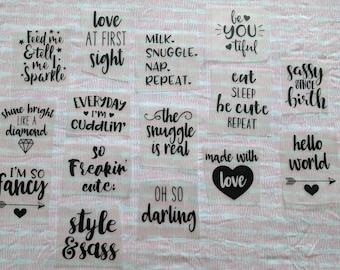 Feed me
& tell
me I
Sparkle
love
AT FIRST
sight
MILK.
SNUGGLE.
NAP.
REPEAT.
be
YOU
tiful
sassy
SINCE
birth
eat
SLEEP
be cute
REPEAT
shine bright
LIKE A
diamond
EVERYDAY
I'M
CUDDLIN'
the
snuggle
is real
I'M SO
fancy
SO
Freakin'
cute.
made with
love
hello
world
OH SO
darling
style
& sass